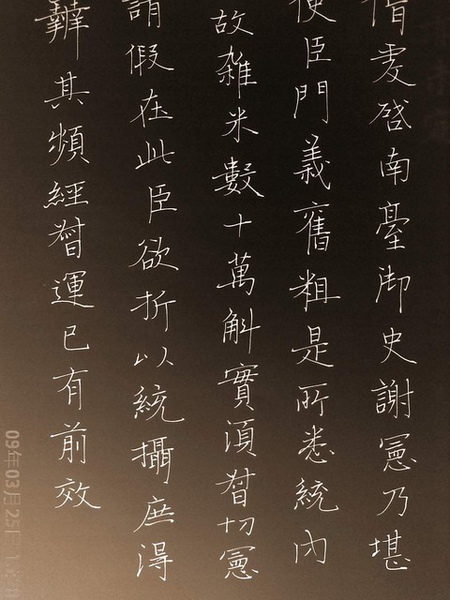 僧虔啓南臺御史謝憲乃堪
使臣門義舊粗是所悉統內
故雜米數十萬斛實須督切憲
請假在此臣欲折以統攝庶得
辦其頻經督運已有前效
09年03月25日